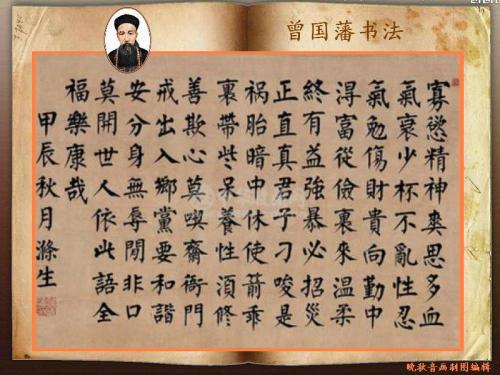 曾国藩书法
寡慾精神爽思多血
氣衰少杯不亂性忍
氣勉傷財貴向勤中
淂富從儉裏來溫柔
終有益強暴必招災
正直真君子刁唆是
祸胎暗中休使箭乖
裏帶些呆養性湏修
善欺心莫喫齋衙門
戒出入鄉黨要和諧
安分身無辱閒非口
莫開世人依此語全
福樂康哉
甲辰秋月滌生
晚秋音画制图编辑